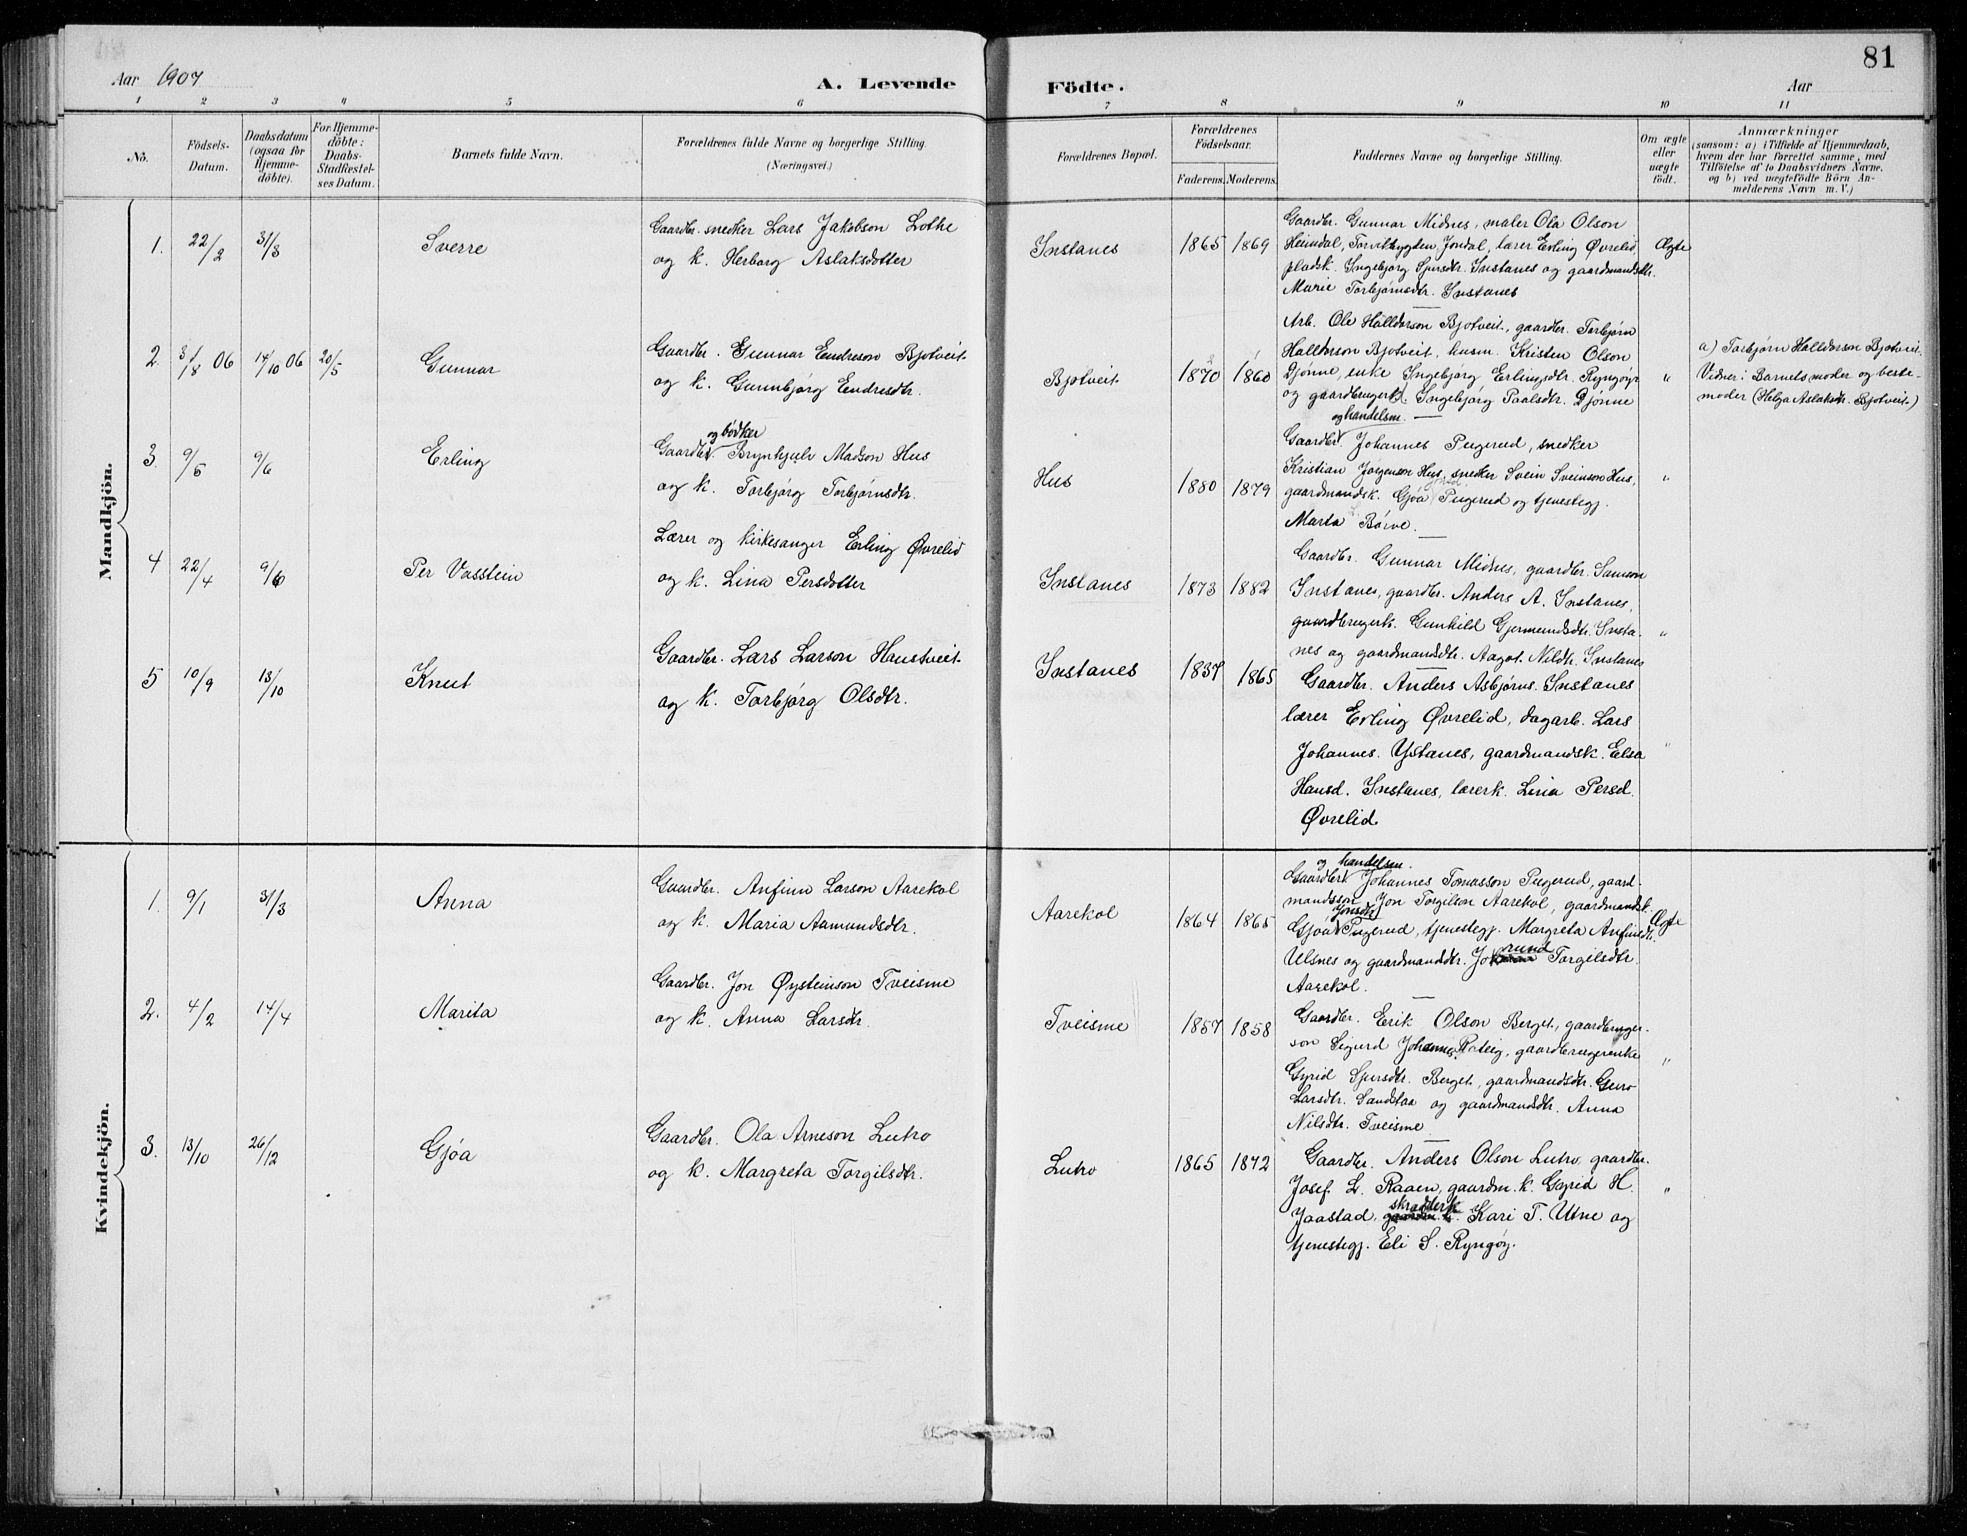 81
Aar 1907
A. Levende
Födte.
Aar
1 2 3 4 5 6 7 8 9 10 11
No.
Födsels-
Datum.
Daabsdatum
(ogsaa for
Hjemme-
döbte).
For Hjemme-
döbte:
Daabs-
Stadfæstel-
ses Datum.
Barnets fulde Navn.
Forældrenes fulde Navne og borgerlige Stilling.
(Næringsvei.)
Forældrenes Bopæl.
Forældrenes
Födselsaar.
Faderens. Moderens.
Faddernes Navne og borgerlige Stilling.
Om ægte
eller
uægte
födt.
Anmærkninger
(saasom: a) i Tilfælde af Hjemmedaab,
hvem der har forrettet samme, med
Tilföielse af to Daabsvidners Navne.
og b) ved uægtefödte Börn An-
melderens Navn m. V.)
Mandkjön.
1. 22/2 31/3 Sverre
Gaardbr. snedker Lars Jakobson Lothe
og k. Herborg Aslaksdotter
Instanes 1865 1869
Gaardbr. Gunnar Midnes, maler Ola Olson
Heimdal, Torvikbygden, Jondal, lærer Erling Øvrelid,
pladsk. Ingebjørg Sjursdtr. Instanes og gaardmandsdtr.
Marie Torbjørnsdtr. Instanes
Ægte
2. 31/8 06 14/10 06 20/5 Gunnar
Gaardbr. Gunnar Endreson Bjotveit
og k. Gunnbjørg Endresdtr.
Bjotveit 1870 1860
Arb. Ole Halldorson Bjotveit, gaardbr. Torbjørn
Halldorson Bjotveit, husm. Kristen Olson
Djønne, enke Ingebjørg Erlingsdtr. Ryngøyr
og gaardbrugerk. Ingebjørg Paalsdtr. Djønne
"
a) Torbjørn Halldorson Bjotveit.
Vidner: Barnets moder og beste-
moder (Helga Aslaksdr. Bjotveit.)
3. 9/5 9/6 Erling
og bødker
Gaardbr. Brynhjulv Madson Hus
og k. Torbjørg Torbjørnsdtr.
Hus 1880 1879
og handelsm.
Gaardbr. Johannes Pugerud, snedker
Kristian Jørgenson Hus, snedker Svein Sveinson Hus,
gaardmandsk. Gjøa Pugerud og tjenestegj.
Marta Børve.
"
4 22/4 9/6 Per Vasstein
Lærer og kirkesanger Erling Øvrelid
og k. Lina Persdotter
Instanes 1873 1882
Gaardbr. Gunnar Midnes, gaardbr. Samson
Instanes, gaardbr. Anders A. Instanes,
gaardbrugerk. Gunhild Gjermundsdtr. Insta-
nes og gaardmandsdtr. Aagot Nilsdtr. Instanes
"
5 10/9 13/10 Knut
Gaardbr. Lars Larson Haustveit
og k. Torbjørg Olsdtr.
Instanes 1837 1865
Gaardbr. Anders Asbjørns. Instanes
lærer Erling Øvrelid, dagarb. Lars
Johannes. Ystanes, gaardmandsk. Elsa
Hansd. Instanes, lærerk. Lina Persd.
Øvrelid
"
Kvindekjön.
1. 9/1 31/3 Anna
Gaardbr. Anfinn Larson Aarekol
og k. Maria Aamundsdtr.
Aarekol 1864 1865
og handelsm.
Gaardbr. Johannes Tomasson Pugerud, gaard-
mandsson Jon Torgilson Aarekol, gaardmandsk.
Jonsdtr
Gjøa Pugerud, tjenestegj. Margreta Anfinsdtr.
Ulsnes og gaardmanddtr. Jorund Torgilsdtr.
Aarekol.
Ægte
2. 4/2 14/4 Marita
Gaardbr. Jon Øysteinson Tveisme
og k. Anna Larsdtr.
Tveisme 1857 1858
Gaardbr. Erik Olson Berget, gaardbruger-
son Sigurd Johannes. Rateig, gaardbrugerenke
Gyrid Sjursdtr. Berget, gaardmandsdtr. Guro
Larsdtr. Sandstaa og gaardmandsdtr. Anna
Nilsdtr. Tveisme
"
3. 13/10 26/12 Gjøa
Gaardbr. Ola Arneson Lutro
og k. Margreta Torgilsdtr.
Lutro 1865 1872
Gaardbr. Anders Olson Lutro, gaardbr.
Josef L. Raaen, gaardm. k. Gyrid H.
skradderk
Jaastad, gaardm. k. Kari T. Utne og
tjenestegj. Eli S. Ryngøy.
"